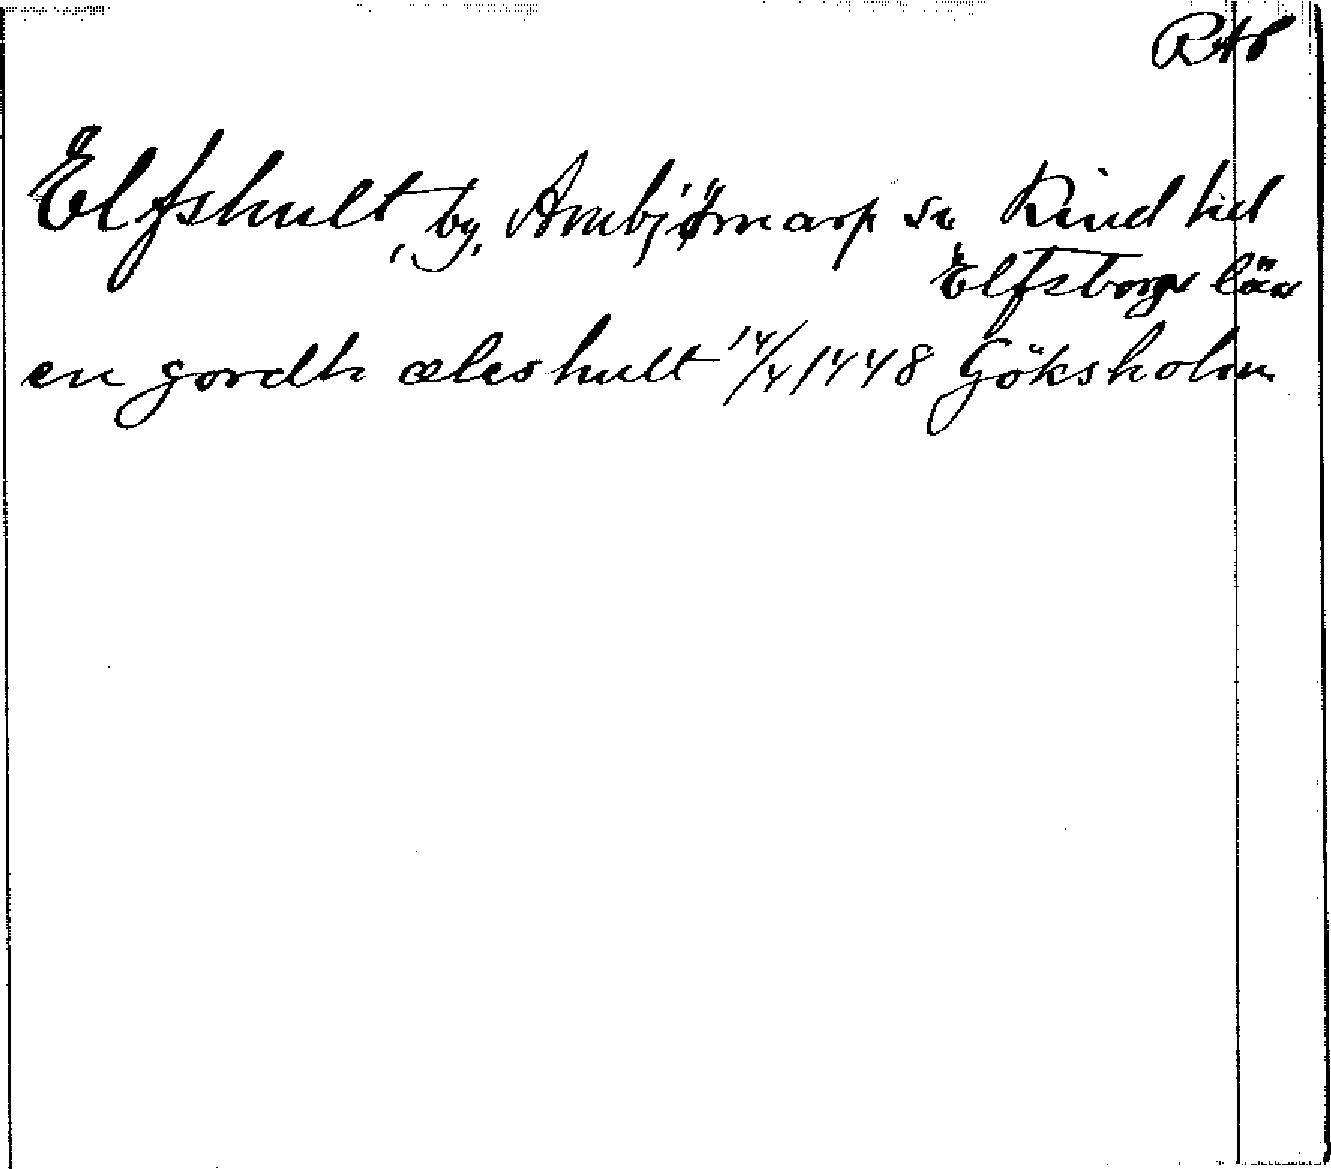 RAP
Elfshult, by, Ambjörnarp sn Kind hd
Elfsborgs län
en gordh æleshult 14/4 1448 Göksholm